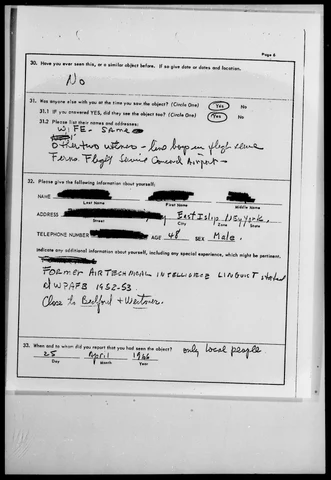 Page 6
30. Have you ever seen this, or a similar object before. If so give date or dates and location.
No
31. Was anyone else with you at the time you saw the object? (Circle One) Yes No
31.1 If you answered YES, did they see the object too? (Circle One) Yes No
31.2 Please list their names and addresses:
WIFE - SAME
Other two witness - two boys in flight
Flight Service Concord Airport -
32. Please give the following information about yourself:
NAME
Last Name First Name Middle Name
ADDRESS East Islip New York.
Street City Zone State
TELEPHONE NUMBER AGE 48 SEX Male.
Indicate any additional information about yourself, including any special experience, which might be pertinent.
FORMER AIR TECHNICAL INTELLIGENCE LINGUIST
at WPAFB 1952-53.
Close to Bedford +
33. When and to whom did you report that you had seen the object? only local people
25 April 1966
Day Month Year